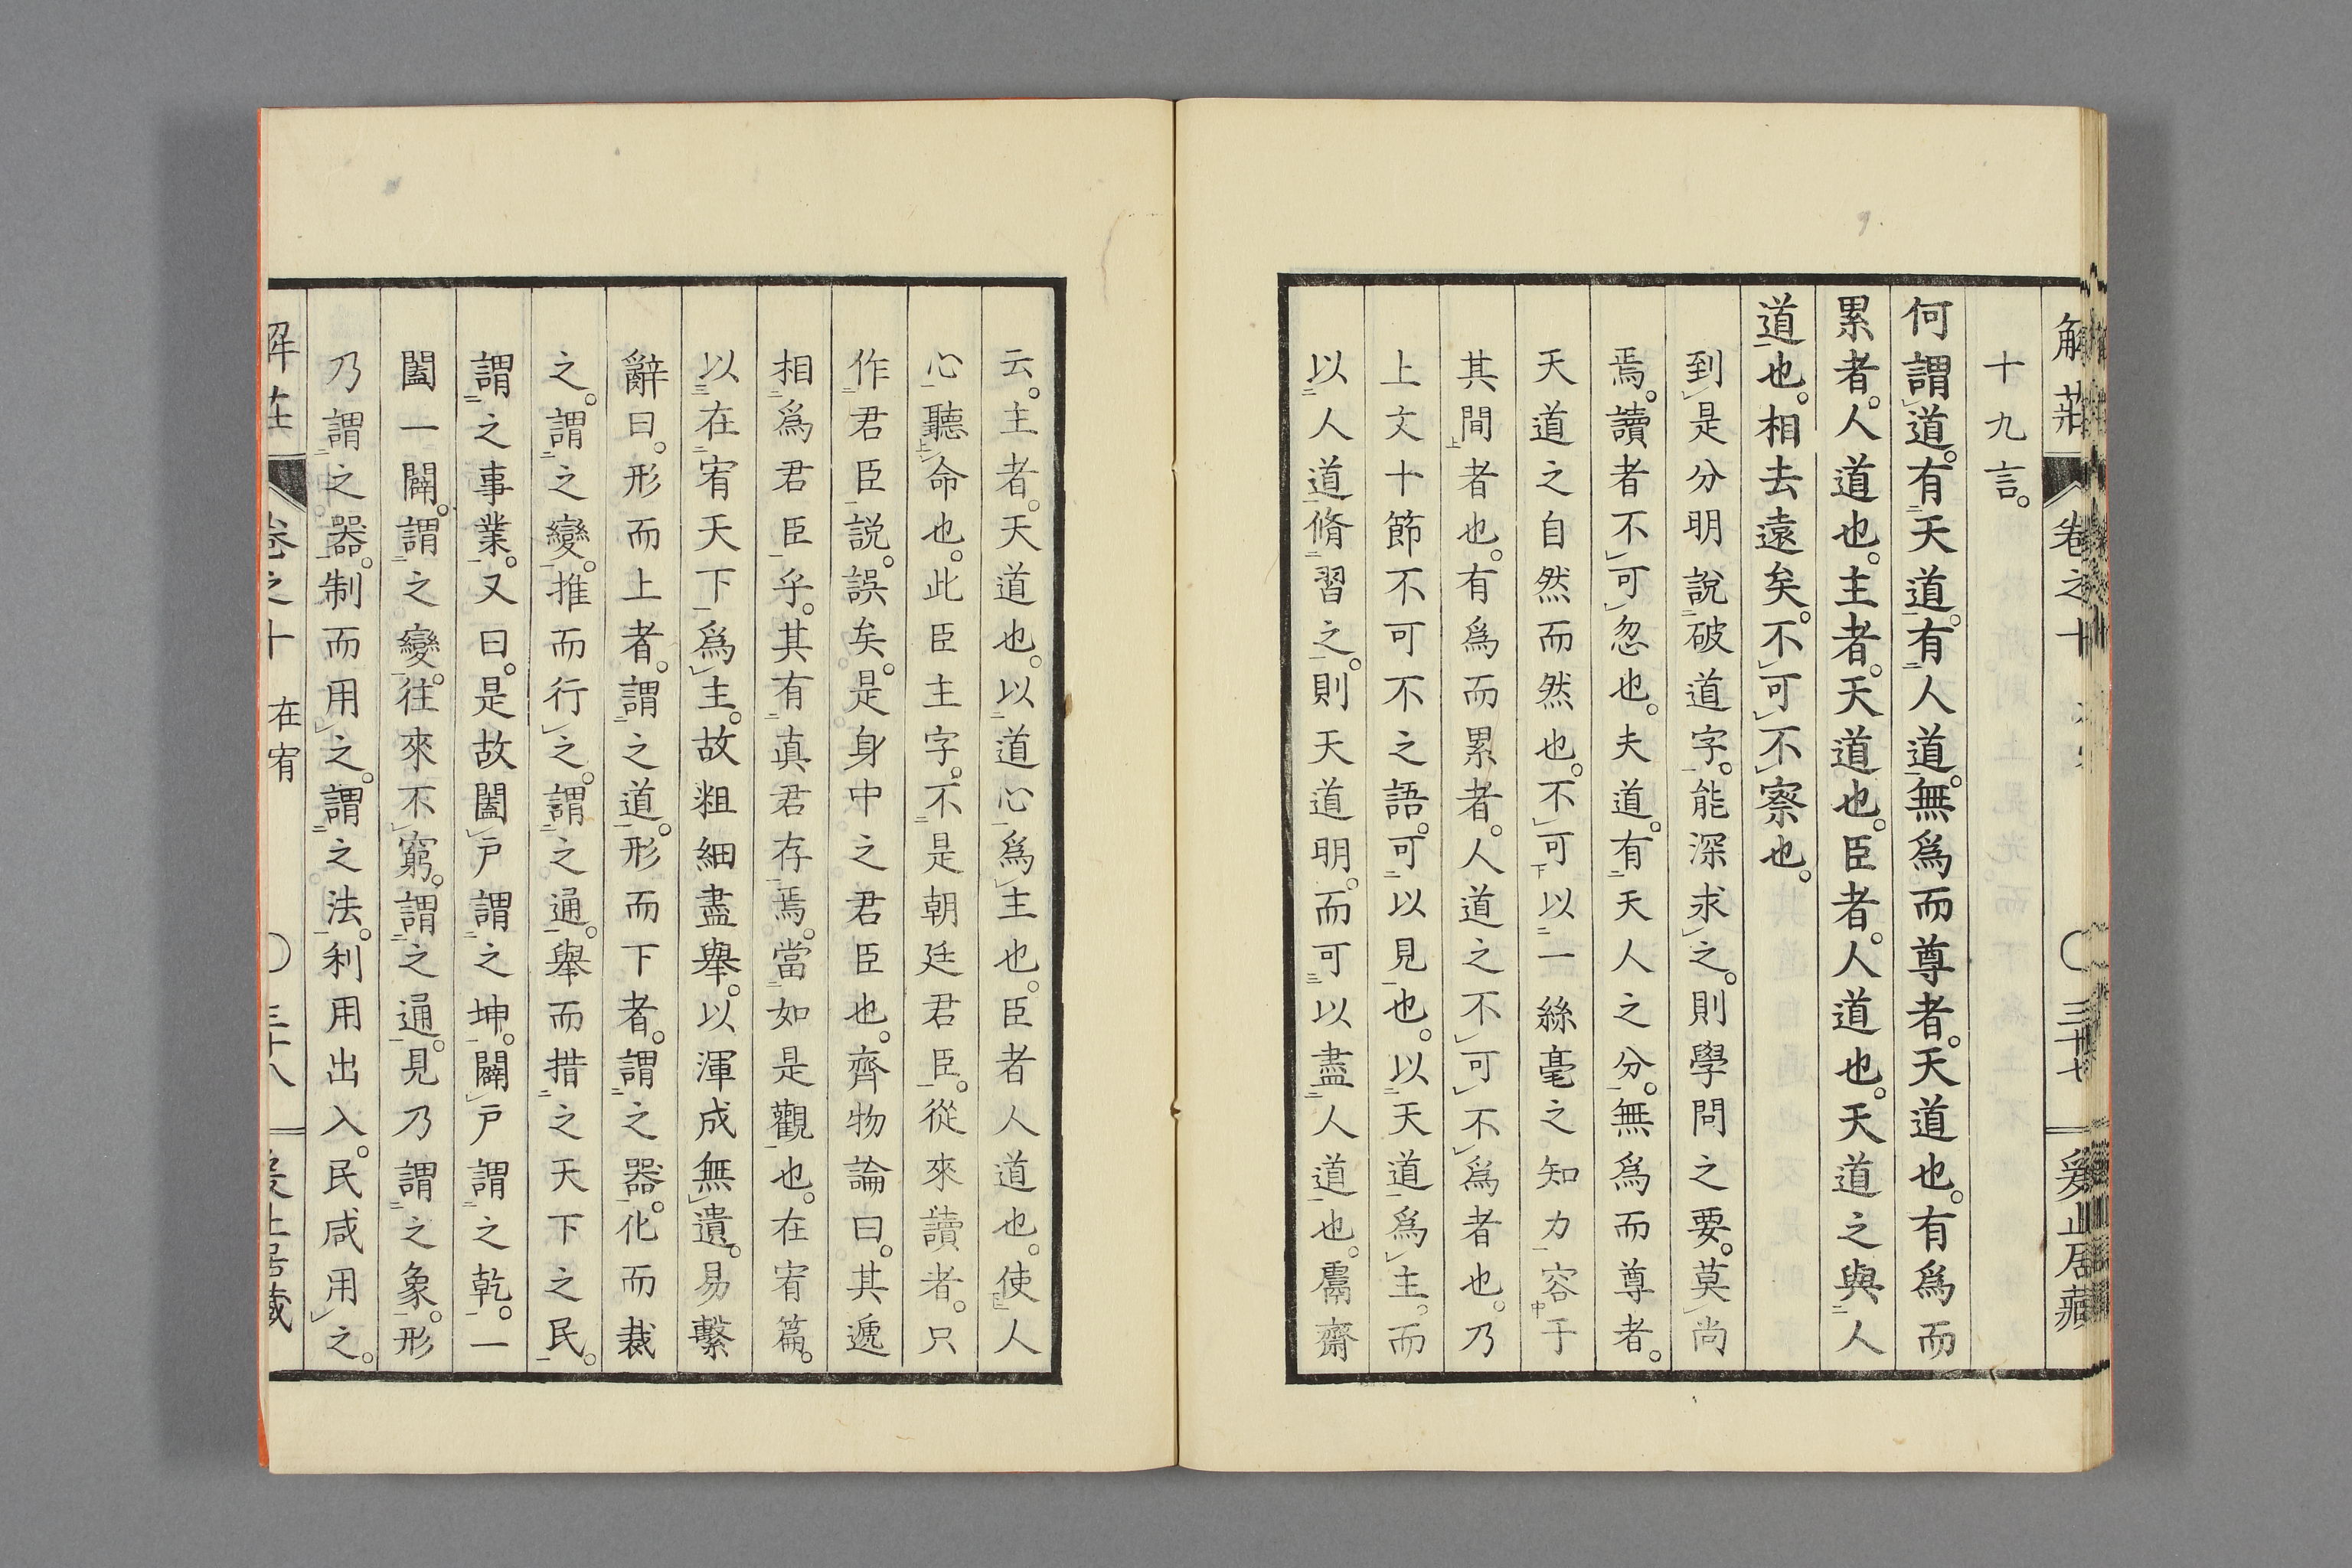 解莊 卷之十 三十七 爰止居藏
十九言。
何謂道。有天道。有人道。無爲而尊者。天道也。有爲而
累者。人道也。主者。天道也。臣者。人道也。天道之與人
道也。相去遠矣。不可不察也。
到是分明說破道字。能深求之。則學問之要。莫尚
焉。讀者不可忽也。夫道。有天人之分。無爲而尊者。
天道之自然而然也。不可以一絲毫之知力容于
其間者也。有爲而累者。人道之不可不爲者也。乃
上文十節不可不之語。可以見也。以天道爲主。而
以人道脩習之。則天道明。而可以盡人道也。鬳齋
云。主者。天道也。以道心爲主也。臣者人道也。使人
心聽命也。此臣主字。不是朝廷君臣。從來讀者。只
作君臣説。誤矣。是身中之君臣也。齊物論曰。其遞
相爲君臣乎。其有真君存焉。當如是觀也。在宥篇。
以在宥天下爲主。故粗細盡舉。以渾成無遺。易繫
辭曰。形而上者。謂之道。形而下者。謂之器。化而裁
之。謂之變。推而行之。謂之通。舉而措之天下之民。
謂之事業。又曰。是故闔戸謂之坤。闢戸謂之乾。一
闔一闢。謂之變。往來不窮。謂之通。見乃謂之象。形
乃謂之器。制而用之。謂之法。利用出入。民咸用之。
解莊 卷之十 在宥 三十八 爰止居藏